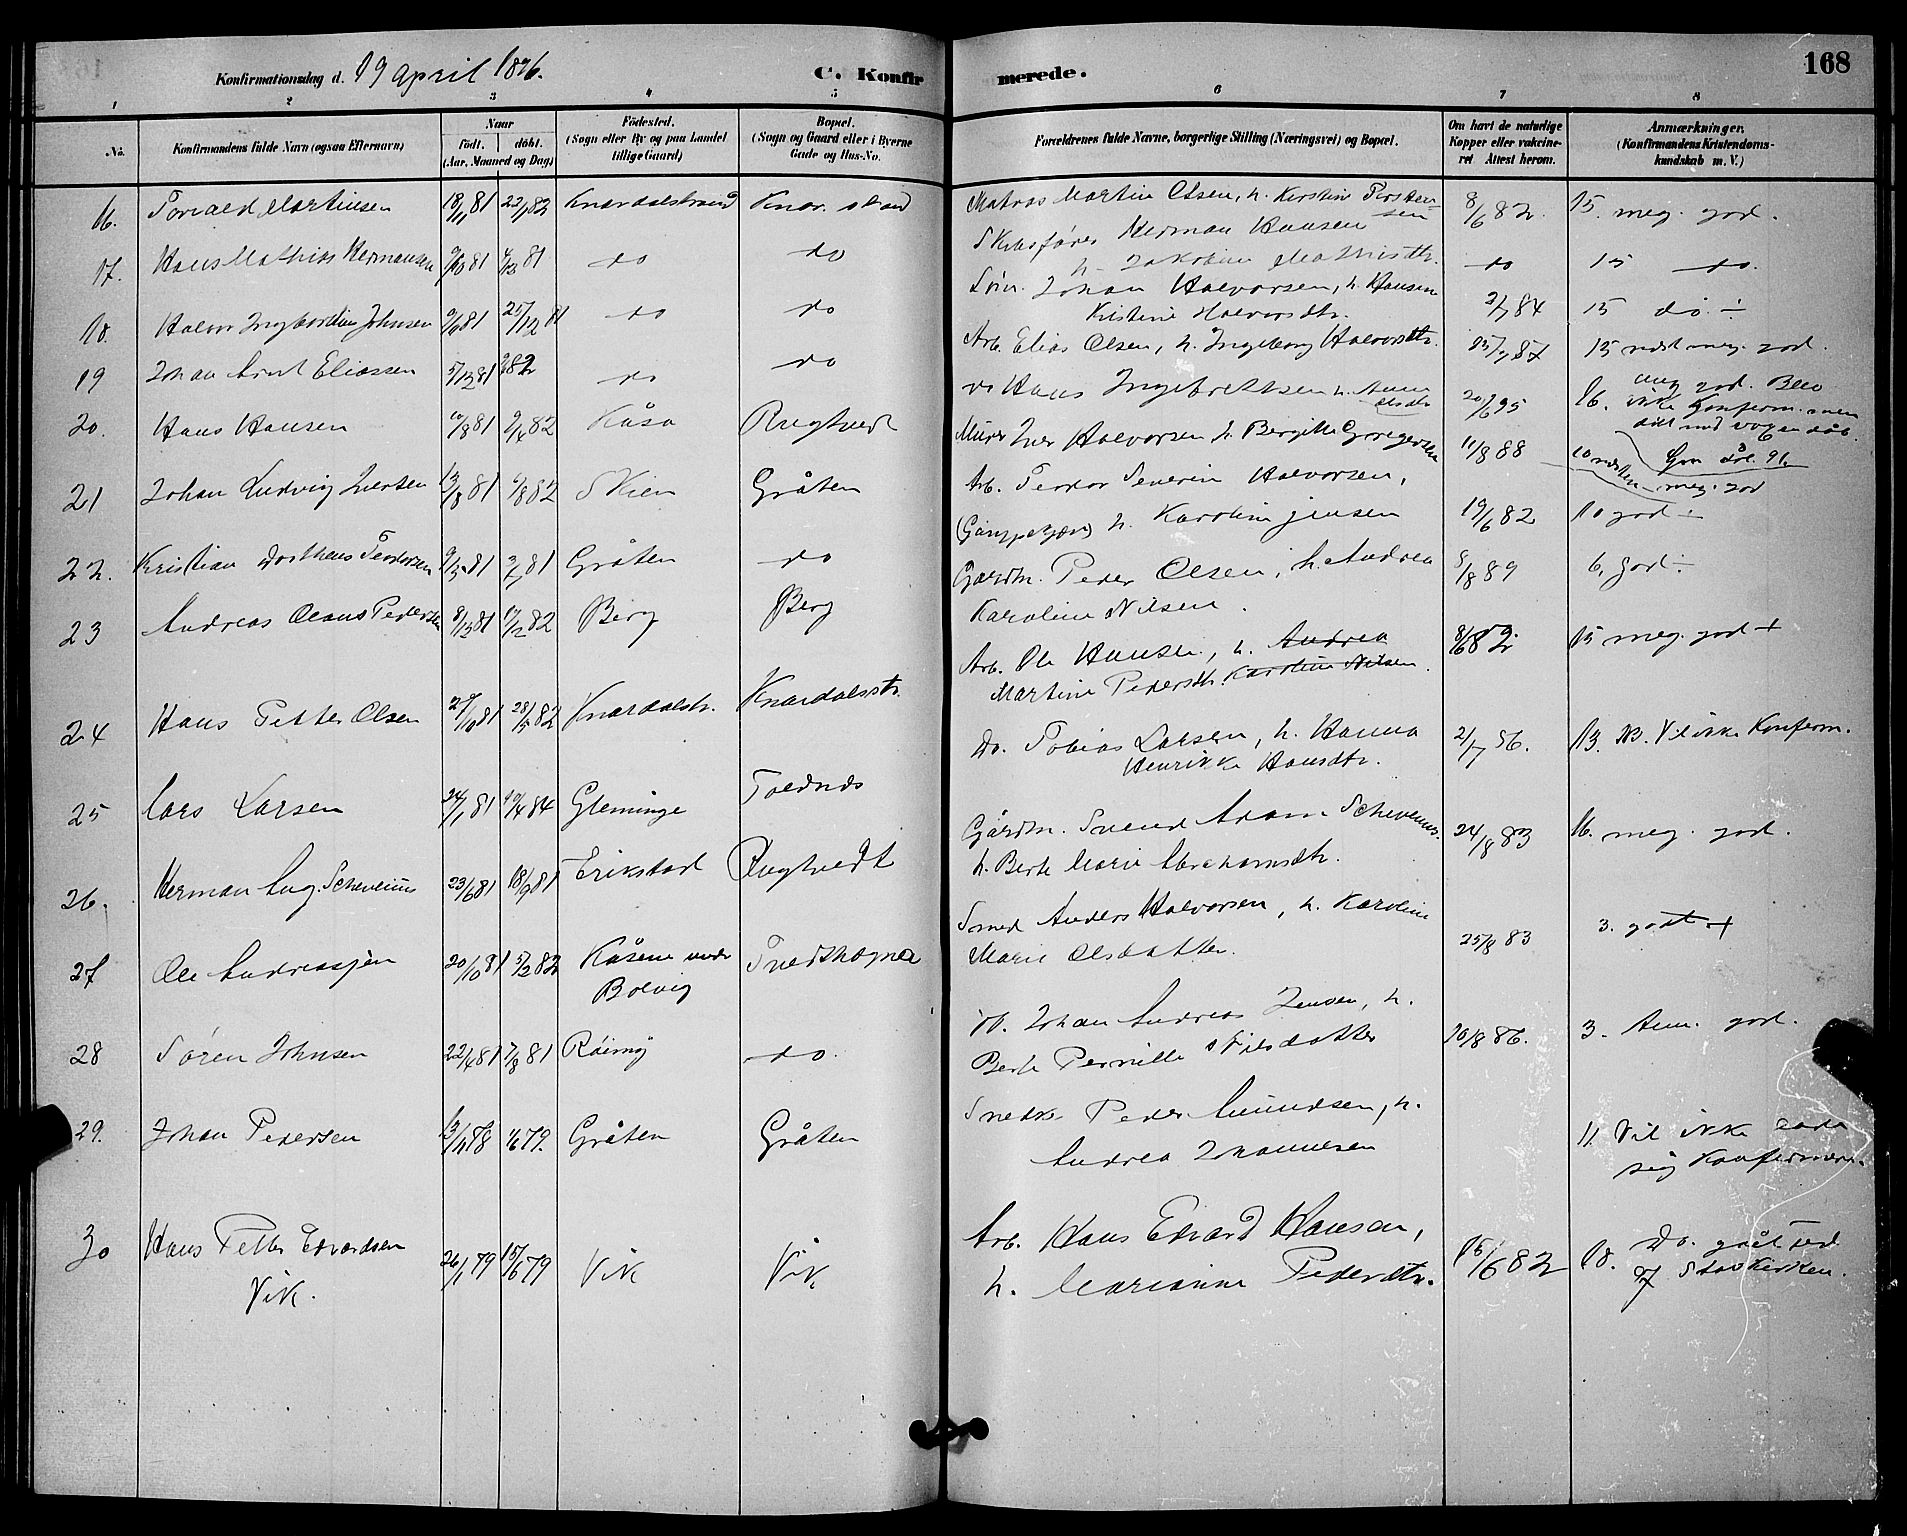 168
Konfirmationsdag d. 19 April 1896.
C. Konfirmerede.
1 2 3 4 5 6 7 8
No.
Konfirmandens fulde Navn (ogsaa Efternavn)
Naar
født. døbt.
(Aar, Maaned og Dag)
Födested.
(Sogn eller By og paa Landet
tillige Gaard)
Bopæl.
(Sogn og Gaard eller i Byerne
Gade og Hus-No.
Forældrenes fulde Navne, borgerlige Stilling (Næringsvei) og Bopæl.
Om havt de naturlige
Kopper eller vakcine-
ret Attest herom.
Anmærkninger.
(Konfirmandens Kristendoms-
kundskab m. V.)
16. Torvald Martinsen 18/11 81 22/1 82 Knardalstrand Knar. strand
Matros Martin Olsen, h. Kirstine Torsten-
sen 8/6 82. 15. meg. god.
17. Hans Mathias Hermansen 9/10 81 4/12 81 do do
Skibsfører Herman Hansen
h. Jakobine Mathisdtr. do 15 do.
18. Halvor Ingbordius Johnsen 9/9 81 25/12 81 do do
Tøm. Johan Halvorsen, h. Hansine
Kristine Halvorsdtr. 2/7 84 15 do. ÷
19 Johan Arnt Eliassen 5/12 81 82 do do
Arb. Elias Olsen, h. Ingeborg Halvorsdtr. 15/7 87 15 næst meg. god.
20. Hans Hansen 10/8 81 9/4 82 Kåsa Rugtvedt
do Hans Ingebrettsen h. Anne
Olsdtr 20/6 95 16. meg god. Blev
ikke Konferm. men
21 Johan Ludvig Iversen 13/8 81 6/8 82 Skien Gråten
Murer Iver Halvorsen h. Bergitte Gregersen 11/8 88 10 næsten meg. god
22. Kristian Dorthens Teodorsen 81 81 Gråten do
Arb. Teodor Severin Halvorsen,
h. Karoline Jensen 19/6 82 10 god ÷
23 Andreas Olaus Pedersen 8/12 81 12/2 82 Berg Berg
Gårdbr. Peder Olsen, h. Andrea
Karoline Nilsen. 8/8 89 6. god ÷
24 Hans Petter Olsen 27/10 81 28/5 82 Knardalstr. Knardalsstr.
Arb. Ole Hansen, h. Andrea
Martine Pedersdtr. Karoline Nilsen. 8/6 82. 15 meg. god +
25 Lars Larsen 24/1 81 4/4 84 Gleminge Toldnæs
Do. Tobias Larsen, h. Hanna
Henrikke Hansdtr. 2/7 86. 13. NB. Vil ikke Konferm.
26. Herman Aug. Schevenius 23/6 81 18/9 81 Erikstad Rugtvedt
Gårdbr. Svend Adam Schevenius.
h. Berte Marie Abrahamsdtr. 24/8 83 16. meg. god.
27 Ole Andreassen 20/10 81 5/2 82 Kåsene under
Bolvig Tvedskogna
Smed Anders Halvorsen, h. Karoline
Marie Olsdatter. 25/8 83 3. godt +
28 Søren Johnsen 22/4 81 7/8 81 Röimyr do.
Johan Andreas Jensen, h.
Berte Pernille Nilsdatter 10/8 86. 3. Tem. god.
29. Johan Pedersen 13/11 78 79. Gråten Gråten
Snedker Peder Amundsen, h.
Andrea Johannesen 11. Vil ikke lade
sig Konfermere.
30 Hans Petter Edvardsen
Vik. 26/1 79 15/6 79 Vik Vik
Arb. Hans Edvard Hansen,
h. Marianne Pedersdtr. 15/6 82 18. Do. gået ud
af Statskirken.